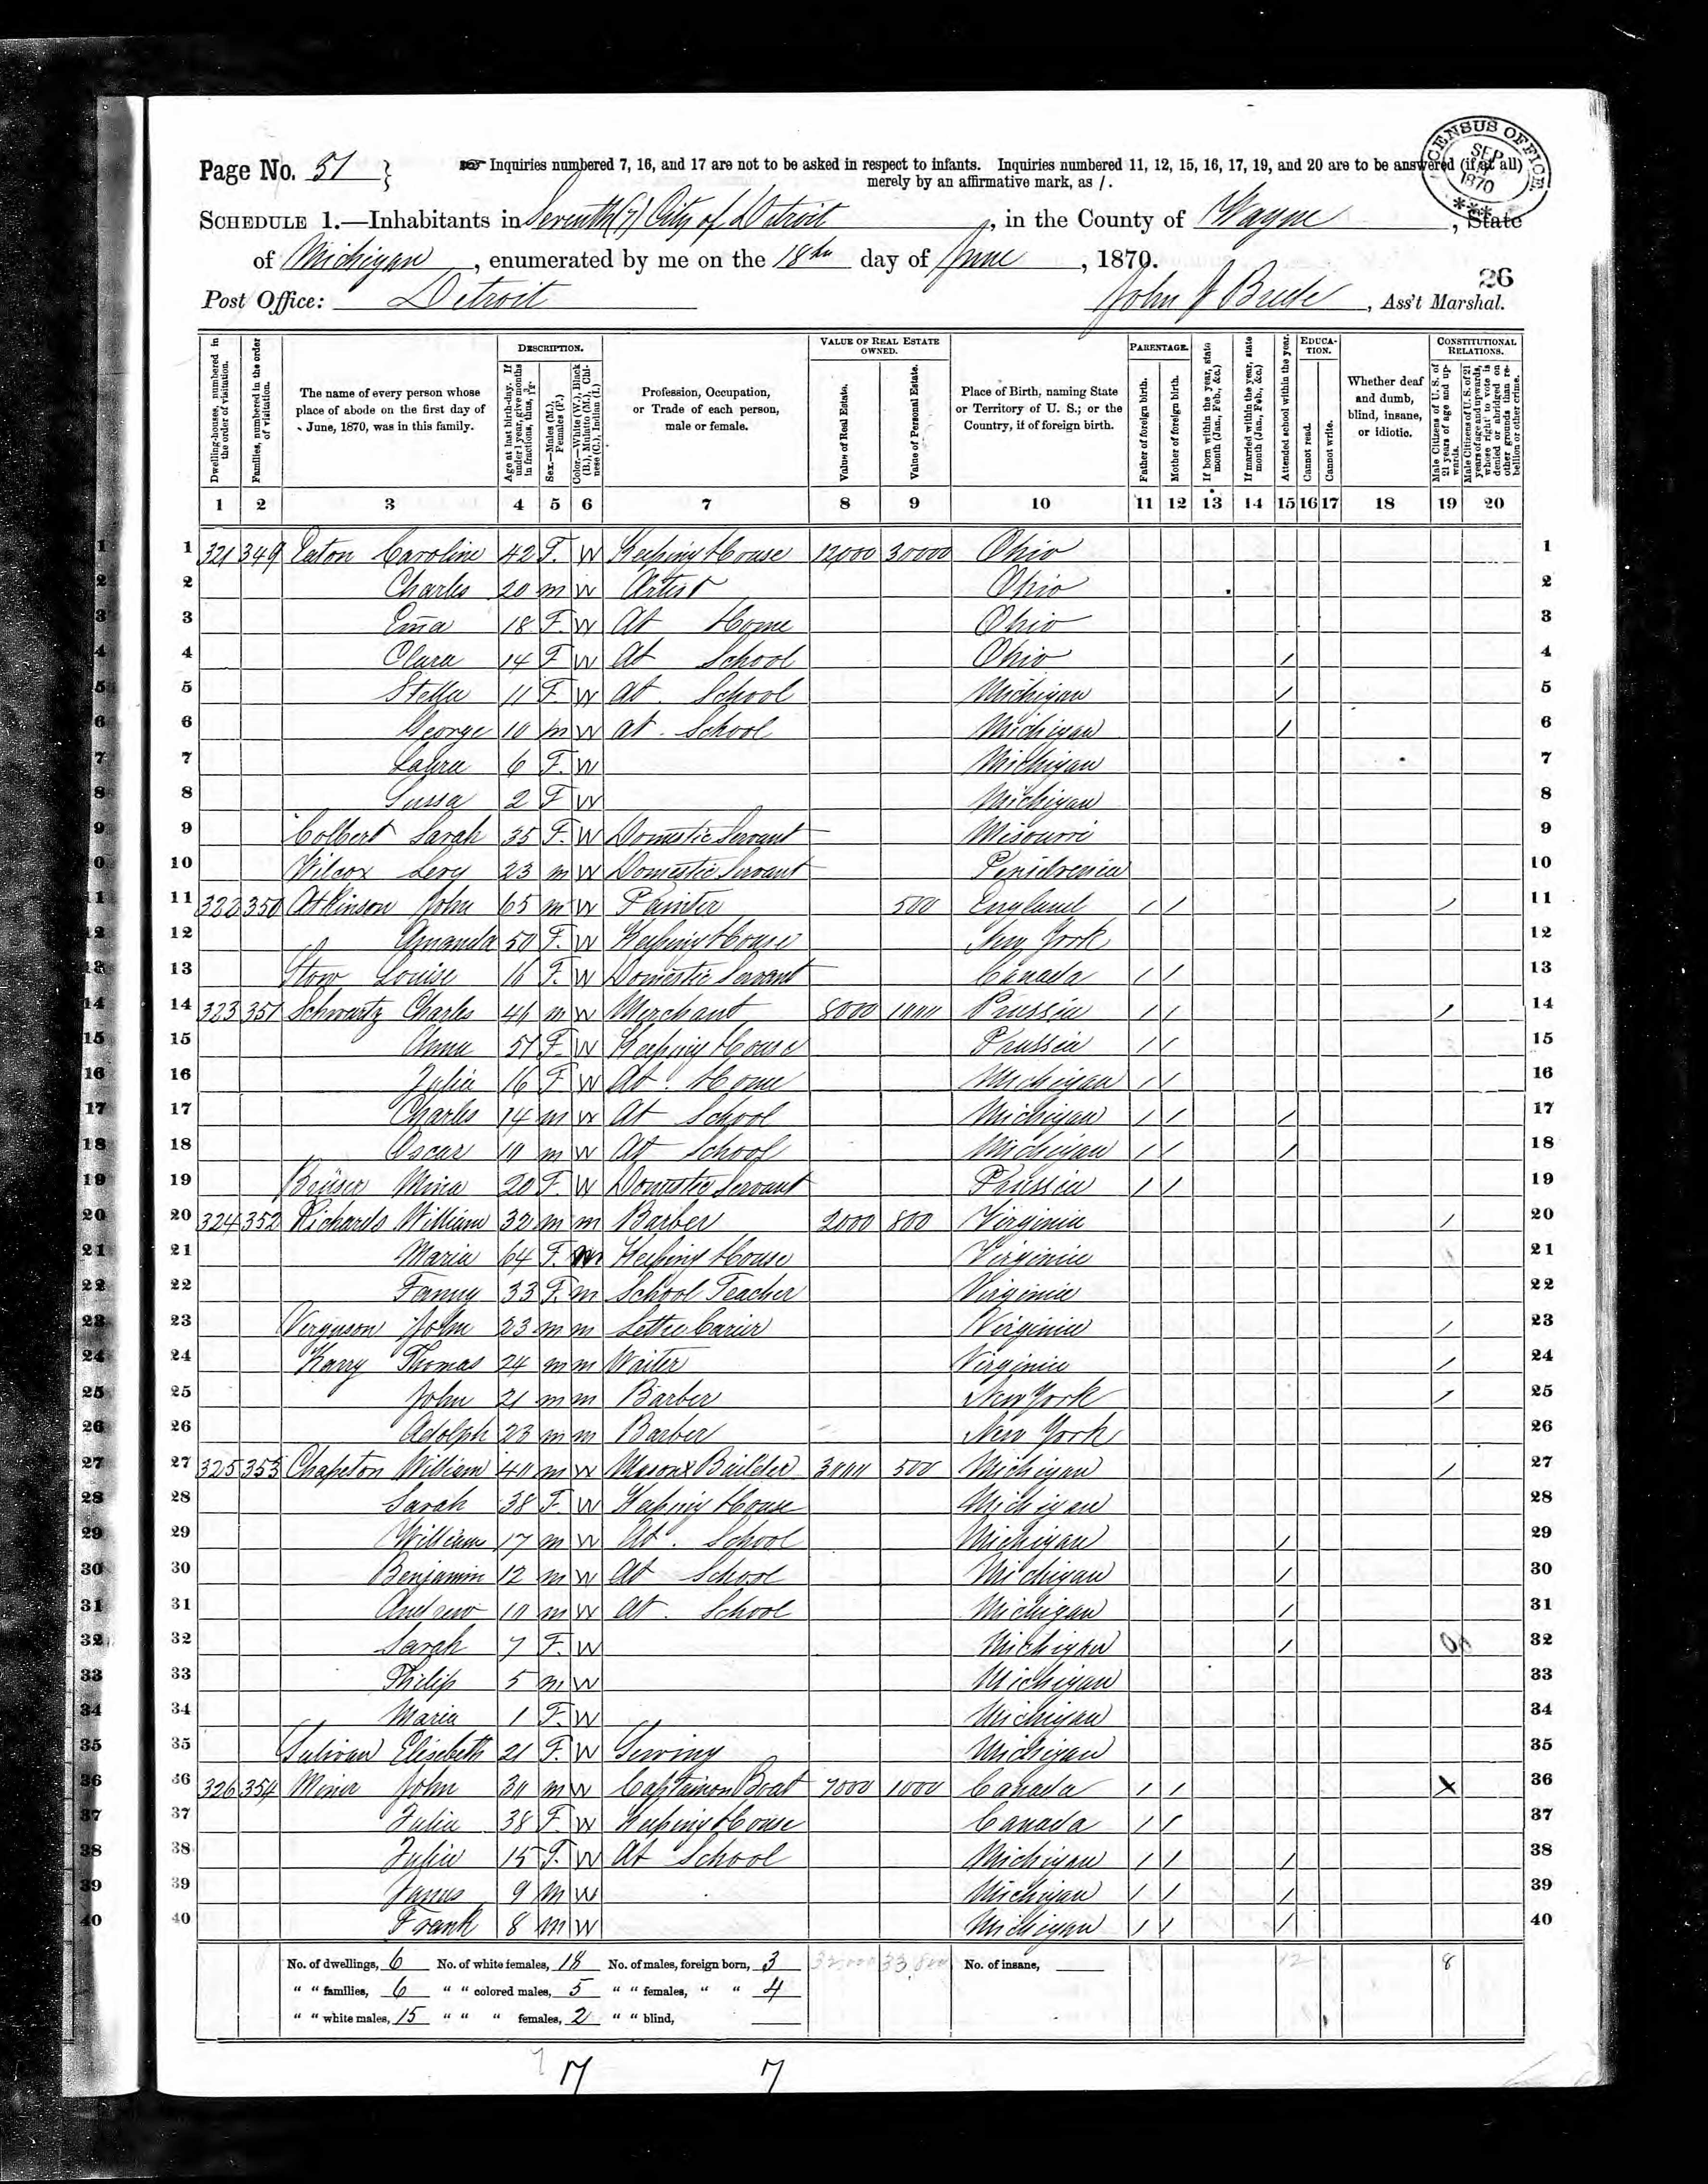 Page No. 51 }
Inquiries numbered 7, 16, and 17 are not to be asked in respect to infants. Inquiries numbered 11, 12, 15, 16, 17, 19, and 20 are to be answered (if at all)
merely by an affirmative mark, as /.
CENSUS OFFICE SEP 1870 ***
SCHEDULE 1.—Inhabitants in Seventh (7) City of Detroit, in the County of Wayne, State
of Michigan, enumerated by me on the 18th day of June, 1870.
26
Post Office: Detroit
John J Ass't Marshal.
Dwelling-houses, numbered in the order of visitation.
Families, numbered in the order of visitation.
The name of every person whose place of abode on the first day of June, 1870, was in this family.
DESCRIPTION.
Age at last birth-day. If under 1 year, give months in fractions, thus, 3/12.
Sex.—Males (M.), Females (F.)
Color.—White (W.), Black (B.), Mulatto (M.), Chinese (C.), Indian (I.)
Profession, Occupation, or Trade of each person, male or female.
VALUE OF REAL ESTATE OWNED.
Value of Real Estate.
Value of Personal Estate.
Place of Birth, naming State or Territory of U. S.; or the Country, if of foreign birth.
PARENTAGE.
Father of foreign birth.
Mother of foreign birth.
If born within the year, state month (Jan., Feb., &c.)
If married within the year, state month (Jan., Feb., &c.)
Attended school within the year.
EDUCATION.
Cannot read.
Cannot write.
Whether deaf and dumb, blind, insane, or idiotic.
CONSTITUTIONAL RELATIONS.
Male Citizens of U. S. of 21 years of age and upwards.
Male Citizens of U. S. of 21 years of age and upwards, whose right to vote is denied or abridged on other grounds than rebellion or other crime.
1 2 3 4 5 6 7 8 9 10 11 12 13 14 15 16 17 18 19 20
1 321 349 Eaton Caroline 42 F. W Keeping House 12000 30000 Ohio 1
2 Charles 20 m W Artist Ohio 2
3 Em̄a 18 F. W At Home Ohio 3
4 Clara 14 F W At School Ohio / 4
5 Stella 11 F. W At School Michigan / 5
6 George 10 m W at School Michigan / 6
7 Laura 6 F. W Michigan 7
8 Sussa 2 F W Michigan 8
9 Colbert Sarah 35 F. W Domestic Servant Misourri 9
10 Wilcox Levy 23 m W Domestic Servant 10
11 322 350 Atkinson John 65 m W Painter 500 England / / / 11
12 Amanda 50 F. W Keeping House New York 12
13 Stow Louise 16 F. W Domestic Servant Canada / / 13
14 323 351 Schwartz Charles 46 m W Merchant 8000 1000 Prussia / / / 14
15 Anna 51 F. W Keeping House Prussia / / 15
16 Julia 16 F W At Home Michigan / / 16
17 Charles 14 m W At School Michigan / / / 17
18 Oscar 10 m W At School Michigan / / / 18
19 Mina 20 F. W Domestic Servant Prussia / / 19
20 324 352 Richards William 32 m m Barber 2000 800 Virginia / 20
21 Maria 64 F. m Keeping House Virginia 21
22 Fanny 33 F. m School Teacher Virginia 22
23 Verguson John 23 m m Letter Carier Virginia / 23
24 Karry Thomas 24 m m Waiter Virginia / 24
25 John 21 m m Barber New York / 25
26 Adolph 23 m m Barber New York 26
27 325 353 Chapeton William 40 m W Mason & Builder 3000 500 Michigan / 27
28 Sarah 38 F. W Keeping House Michigan 28
29 William 17 m W At School Michigan / 29
30 Benjamin 12 m W At School Michigan / 30
31 Andrew 10 m W at School Michigan / 31
32 Sarah 7 F. W Michigan / 32
33 Philip 5 m W Michigan 33
34 Maria 1 F. W Michigan 34
35 Sulivan Elisebeth 21 F. W Sewing Michigan 35
36 326 354 Miner John 30 m W Captain on Boat 7000 1000 Canada / / X 36
37 Julia 38 F. W Keeping House Canada / / 37
38 Julia 15 F. W At School Michigan / / / 38
39 James 9 m W Michigan / / / 39
40 Frank 8 m W Michigan / / / 40
No. of dwellings, 6 No. of white females, 18 No. of males, foreign born, 3 32,000 33,800 No. of insane, 12 8
" " families, 6 " " colored males, 5 " " females, " " 4
" " white males, 15 " " " females, 2 " " blind,
7 7